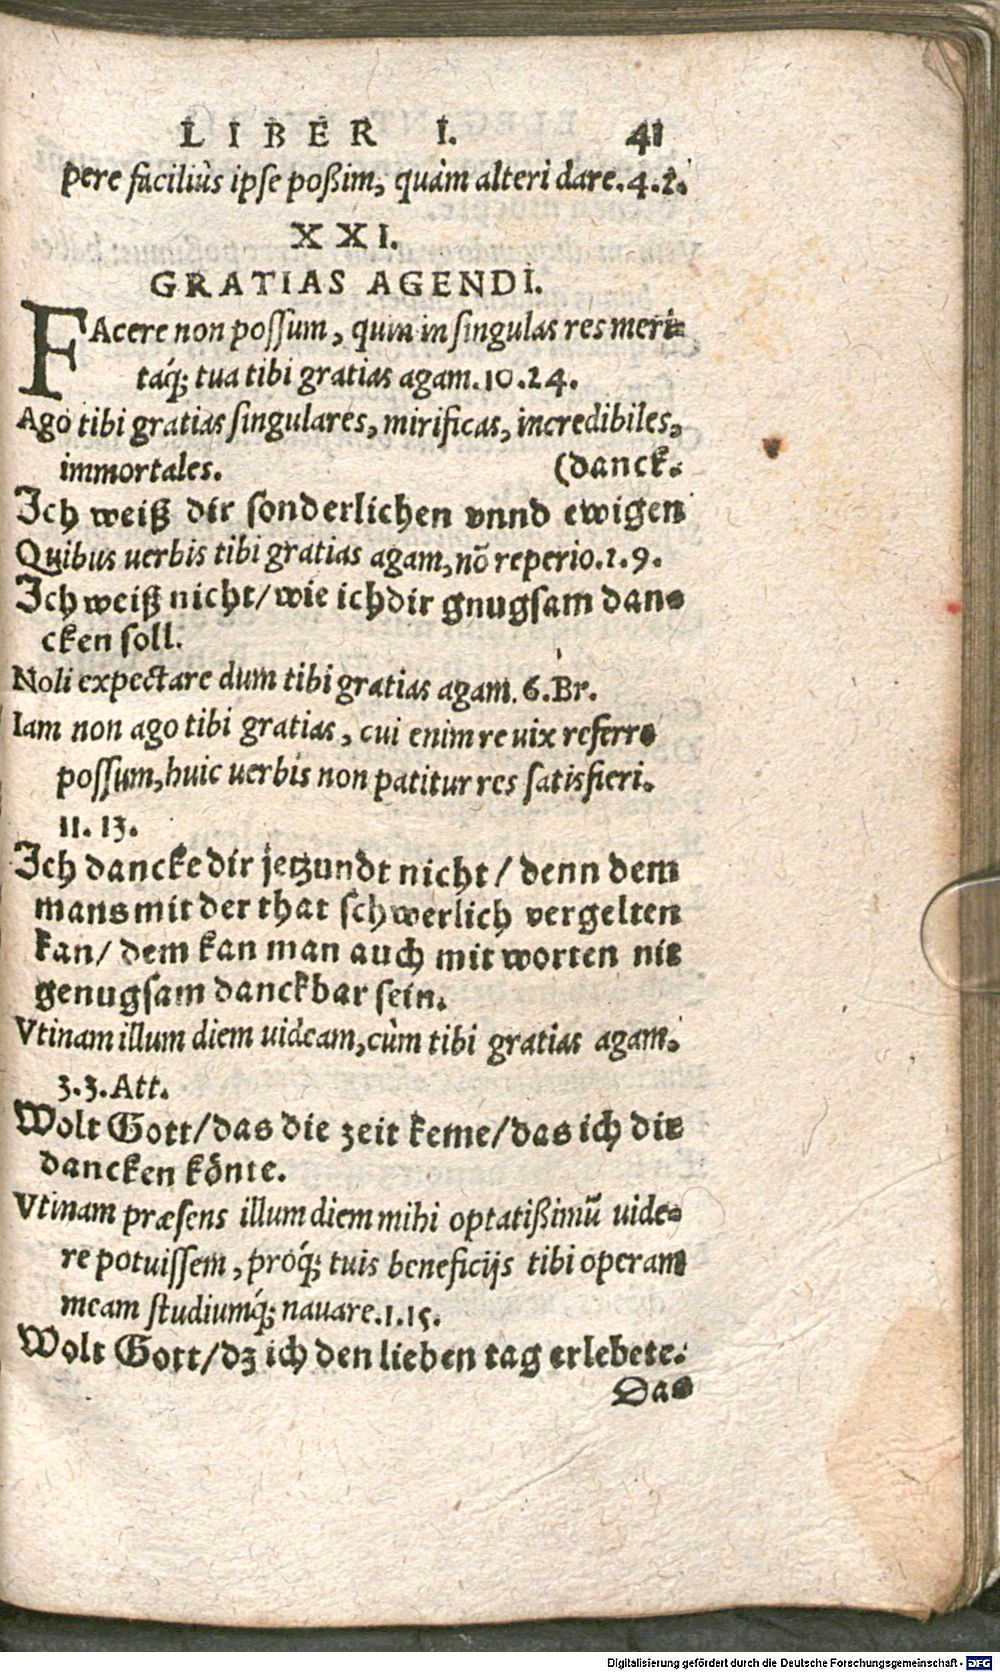 LIBER I. 41
pere faciliùs ipse poßim, quàm alteri dare. 4. 2.
XXI.
GRATIAS AGENDI.
FAcere non possum, quin in singulas res meri-
táq; tua tibi gratias agam. 10. 24.
Ago tibi gratias singulares, mirificas, incredibiles,
immortales. (danck.
Ich weiß dir sonderlichen vnnd ewigen
Quibus uerbis tibi gratias agam, nõ reperio. 1. 9.
Ich weiß nicht/ wie ich dir gnugsam dan-
cken soll.
Noli expectare dum tibi gratias agam. 6. Br.
Iam non ago tibi gratias, cui enim re uix referre
possum, huic uerbis non patitur res satisfieri.
11. 13.
Ich dancke dir jetzundt nicht/ denn dem
mans mit der that schwerlich vergelten
kan/ dem kan man auch mit worten nit
genugsam danckbar sein.
Vtinam illum diem uideam, cùm tibi gratias agam.
3. 3. Att.
Wolt Gott/ das die zeit keme/ das ich dir
dancken könte.
Vtinam præsens illum diem mihi optatißimũ uide-
re potuissem, próq; tuis beneficijs tibi operam
meam studiumq́; nauare. 1. 15.
Wolt Gott/ dz ich den lieben tag erlebete.
Das
Digitalisierung gefördert durch die Deutsche Forschungsgemeinschaft - DFG